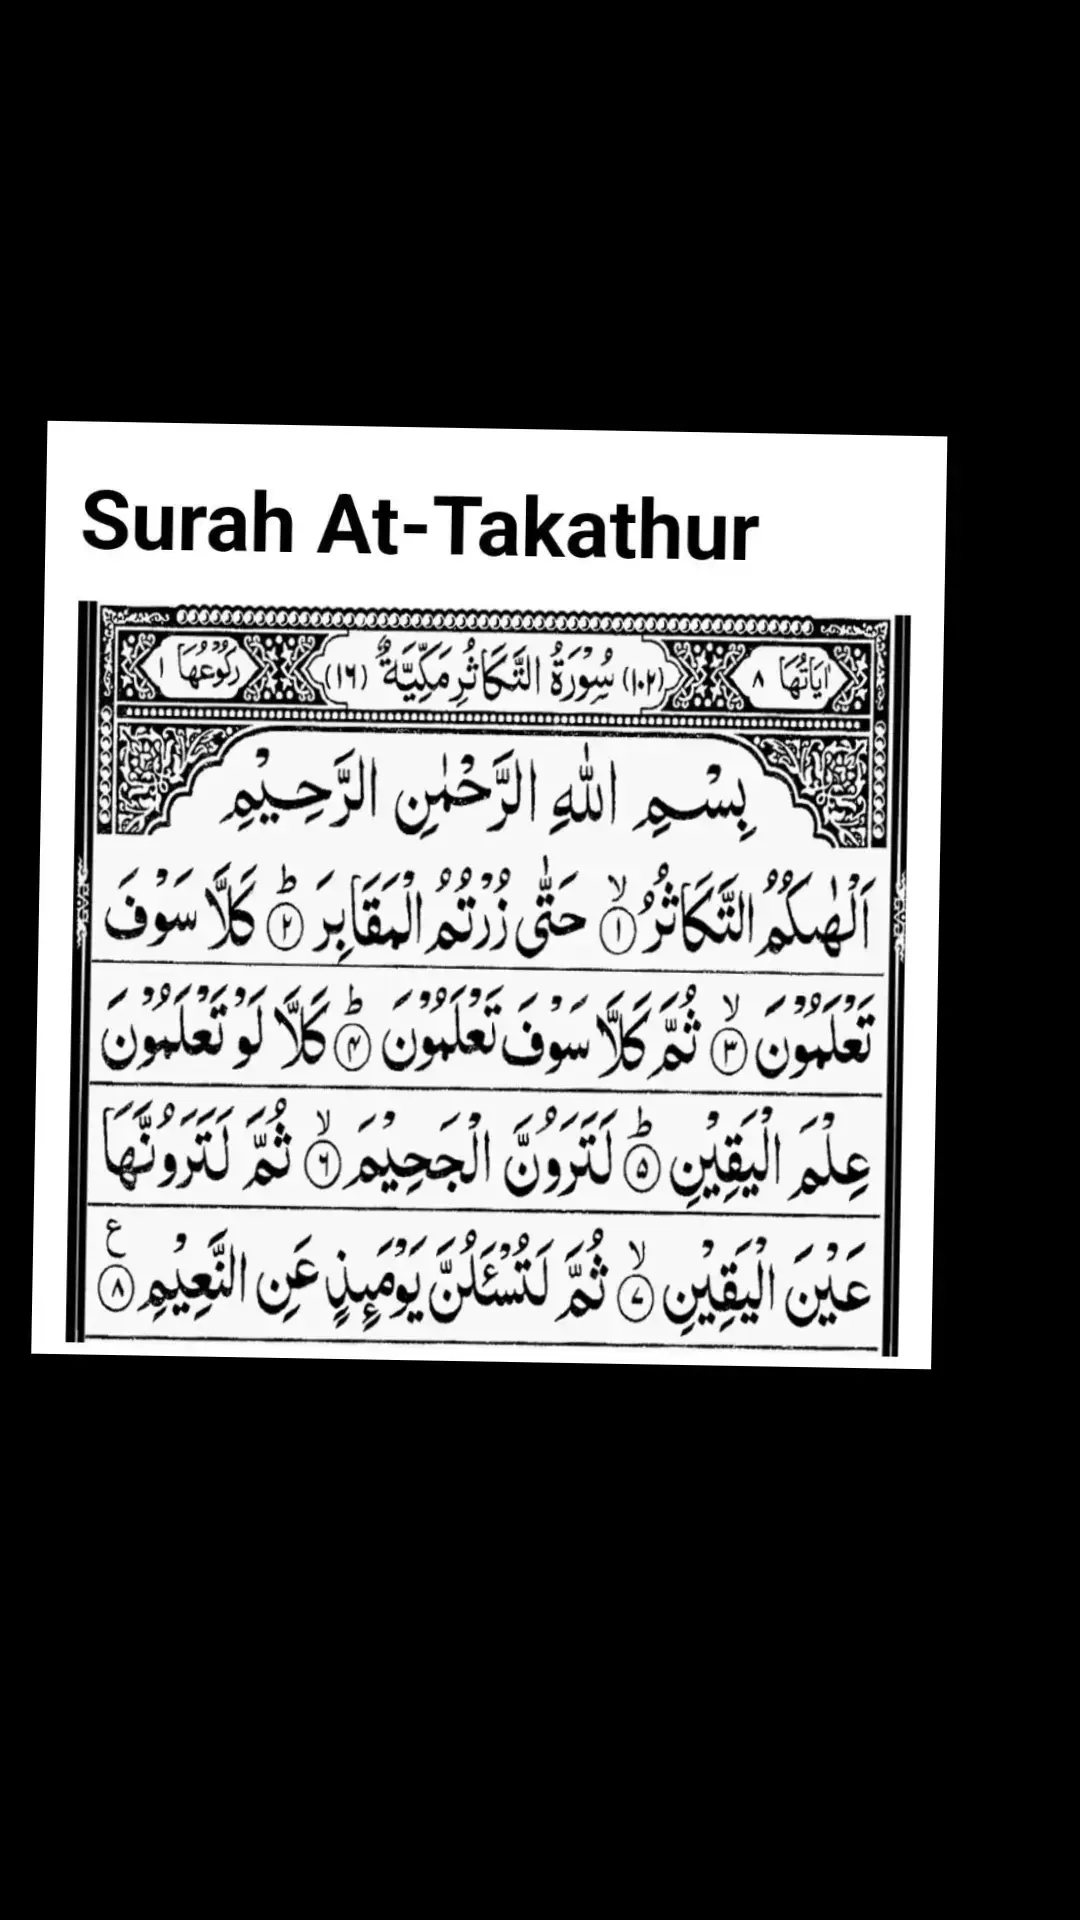 Surah At-Takathur
اٰيَاتُهَا ٨ (١٠٢) سُوْرَةُ التَّكَاثُرِ مَكِّيَّةٌ (١٦) رُكُوْعُهَا ١
بِسْمِ اللّٰهِ الرَّحْمٰنِ الرَّحِيْمِ
اَلْهٰىكُمُ التَّكَاثُرُ ۙ﴿۱﴾ حَتّٰى زُرْتُمُ الْمَقَابِرَ ؕ﴿۲﴾ كَلَّا سَوْفَ
تَعْلَمُوْنَ ۙ﴿۳﴾ ثُمَّ كَلَّا سَوْفَ تَعْلَمُوْنَ ؕ﴿۴﴾ كَلَّا لَوْ تَعْلَمُوْنَ
عِلْمَ الْيَقِيْنِ ؕ﴿۵﴾ لَتَرَوُنَّ الْجَحِيْمَ ۙ﴿۶﴾ ثُمَّ لَتَرَوُنَّهَا
عَيْنَ الْيَقِيْنِ ۙ﴿۷﴾ ثُمَّ لَتُسْـَٔلُنَّ يَوْمَىِٕذٍ عَنِ النَّعِيْمِ ﴿۸﴾ ع